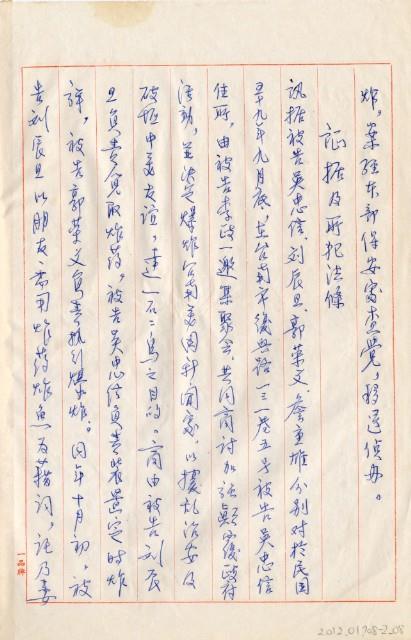 炸。案經本部保安處查覺，移送偵辦。
証據及所犯法條
訊據被告吳忠信、刘辰旦、郭荣文、詹重雄分别对於民国
五十九年九月底，在台南市復興路一三一巷五号被告吳忠信
住所，由被告李政一邀集聚会，共同商討加強顛覆政府
活動，並決定爆炸台南美国新聞處，以擾乱治安及
破坏中美友誼，達一石二鸟之目的。商由被告刘辰
旦負责領取炸药，被告吳忠信負责装置定時炸
弹，被告郭荣文負责执行爆炸。同年十月初，被
告刘辰旦以朋友需用炸药炸魚为藉詞，託乃妻
一品牌
2012.01.908-2_08